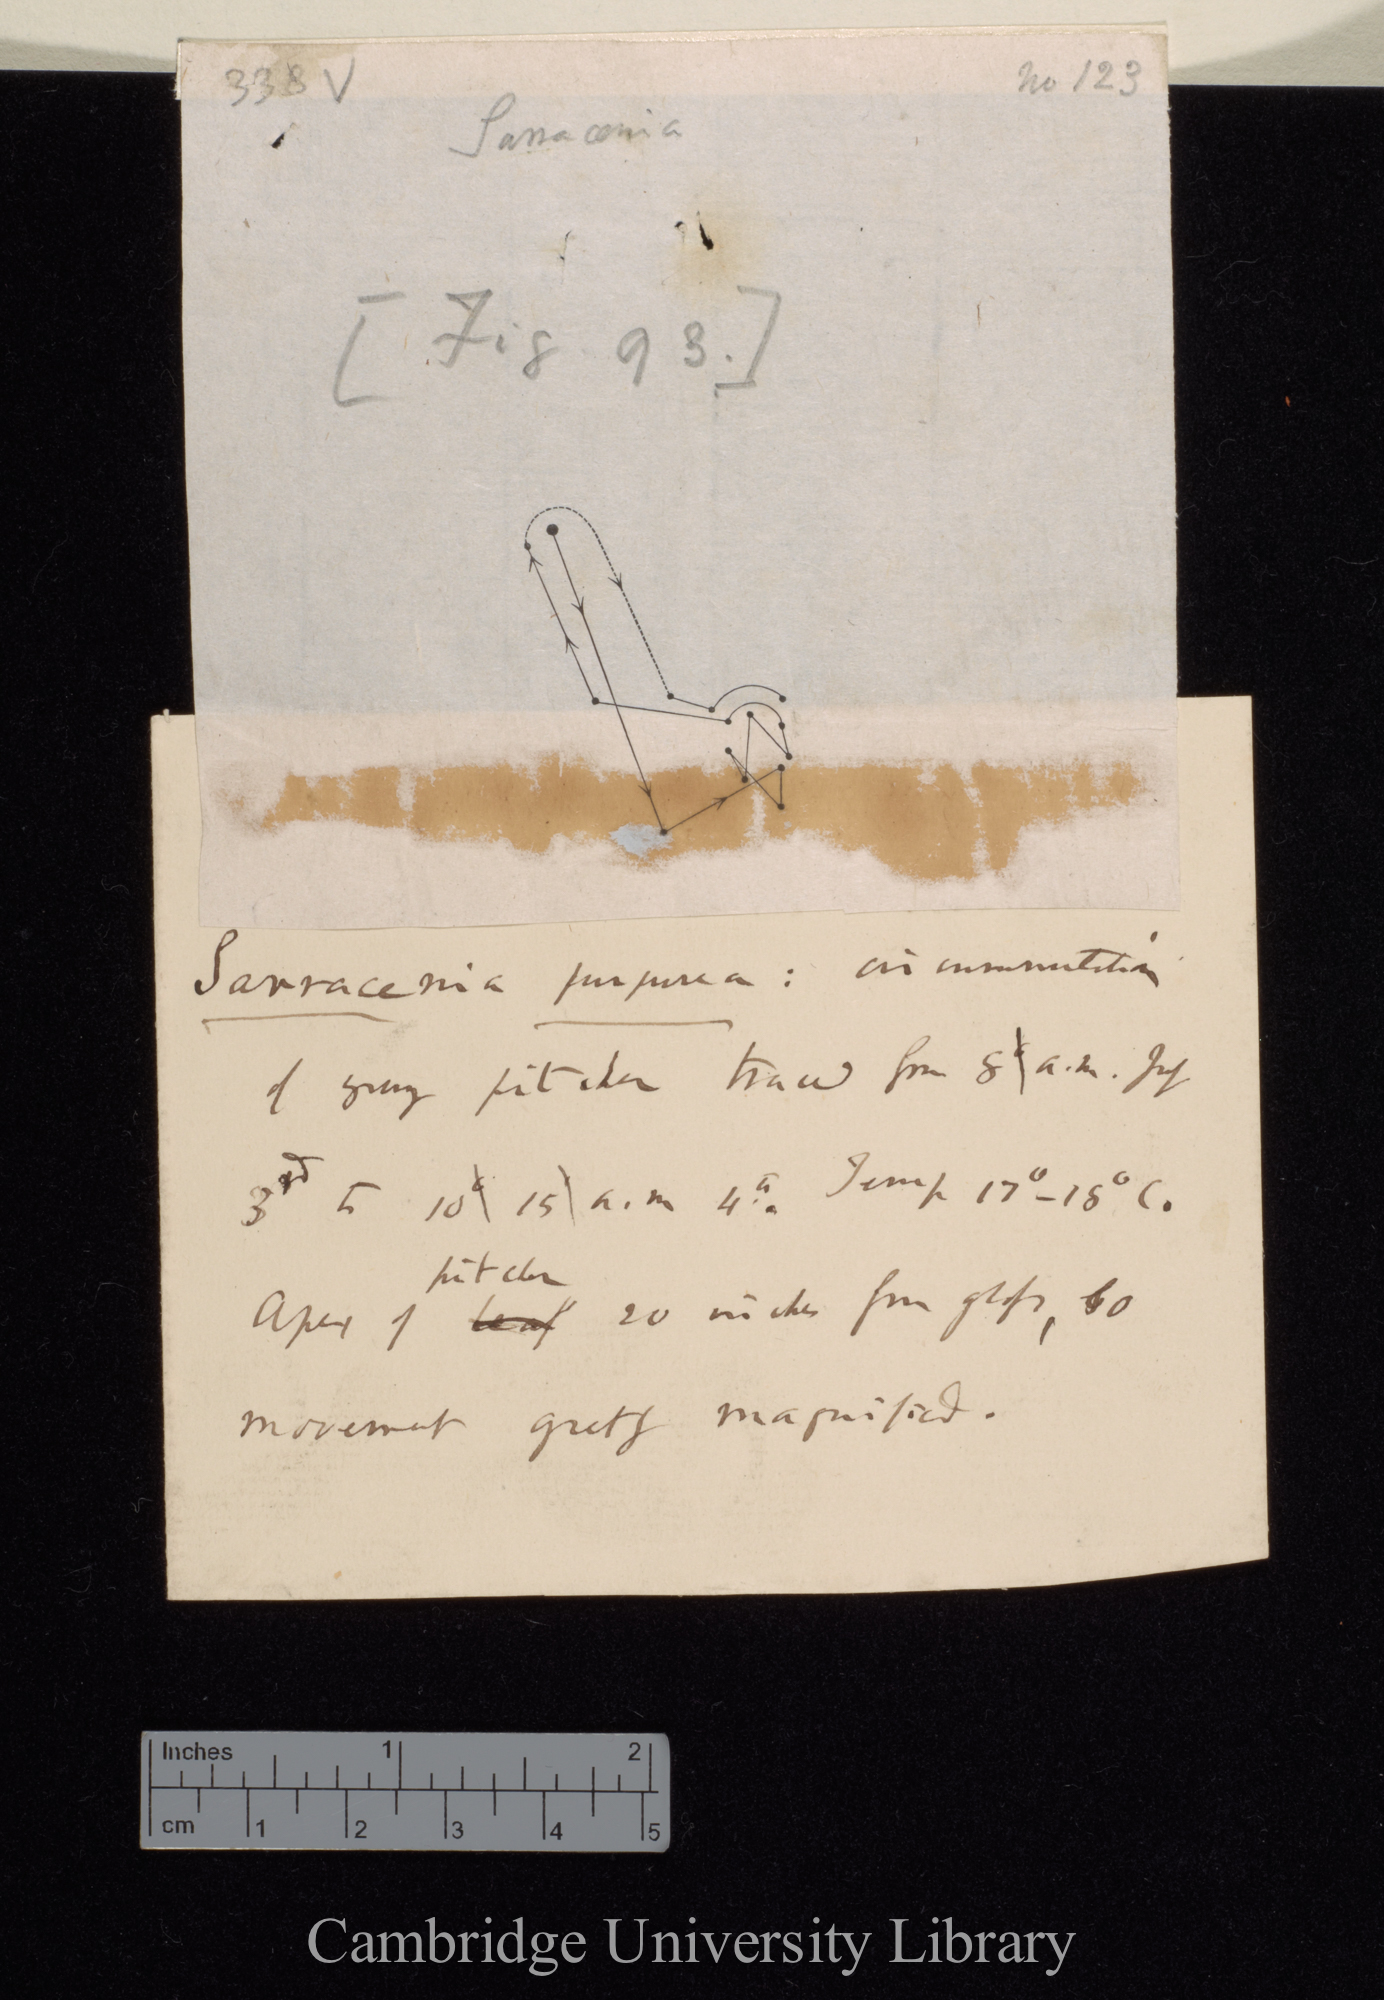 338 V
no 123
Sarracenia
[Fig 93.]
Sarracenia purpurea: circumnutation
of young pitcher traced from 8° a.m. July
3rd to 10° 15' a.m 4th. Temp 17°-18° C.
pitcher
Apex of leaf 20 inches from glass, so
movement greatly magnified.
Inches 1 2
cm 1 2 3 4 5
Cambridge University Library